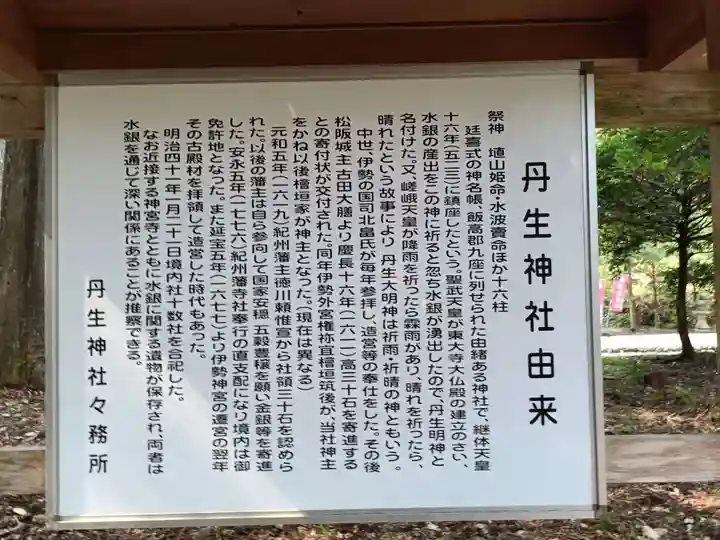 丹生神社由来
祭神　埴山姫命・水波賣命ほか十六柱
廷喜式の神名帳、飯高郡九座に列せられた由緒ある神社で、継体天皇
十六年(五二三)に鎮座したという。聖武天皇が東大寺大仏殿の建立のさい、
水銀の産出をこの神に祈ると忽ち水銀が湧出したので、丹生明神と
名付けた。又、嵯峨天皇が降雨を祈ったら霖雨があり、晴れを祈ったら、
晴れたという故事により 丹生大明神は祈雨・祈晴の神ともいう。
中世、伊勢の国司北畠氏が毎年参拝し、造営等の奉仕をした。その後
松阪城主古田大膳より慶長十六年(一六一一)高三十石を寄進する
との寄付状が交付された。同年伊勢外宮権祢宜檜垣筑後が、当社神主
をかね以後檜垣家が神主となった。(現在は異なる)
元和五年(一六一九)紀州藩主徳川頼惟宣から社領三十石を認めら
れた。以後の藩主は自ら参向して国家安穏 五穀豊穣を願い金銀等を寄進
した。安永五年(一七七六)紀州藩寺社奉行の直支配になり境内は御
免許地となった。また延宝五年(一六七七)より伊勢神宮の遷宮の翌年
その古殿材を拝領して造営した時代もあった。
明治四十一年一月二十一日境内社十数社を合祀した。
なお近接する神宮寺とともに水銀に関する遺物が保存され、両者は
水銀を通じて深い関係にあることが推察できる。
丹生神社々務所